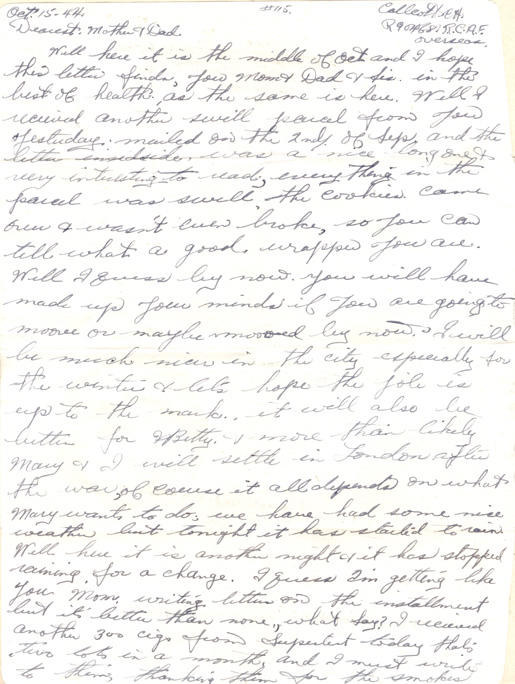 Oct. 15-44. #115.
R.C.A.F.
Dearest: Mother & Dad. overseas.
Well here it is the middle of Oct and I hope
this letter finds, you Mom & Dad & Sis. in the
best of health, as the same is here. Well I
received another swell parcel from you
yesterday. mailed on the 2nd, of Sep, and the
letter was a nice long one &
very interesting to read, everything in the
parcel was swell, the cookies came
over & wasn't even broke, so you can
tell what a good wrapper you are.
Well I guess by now. you will have
made up your minds if you are going to
moove or maybe mooved by now. I will
be much nicer in the city especially for
the winter & let's hope the job is
up to the mark., it will also be
better for Betty. & more than likely
Mary & I will settle in London after
the war, of course it all depends on what
Mary wants to do; we have had some nice
weather but tonight it has started to rain.
Well here it is another night & it has stopped
raining for a change. I guess I'm getting like
you Mom, writing letters on the installment
but it's better than none., what say? I received
another 300 cigs from Supertest today that's
two lots in a month, and I must write
to them, thanking them for the smokes